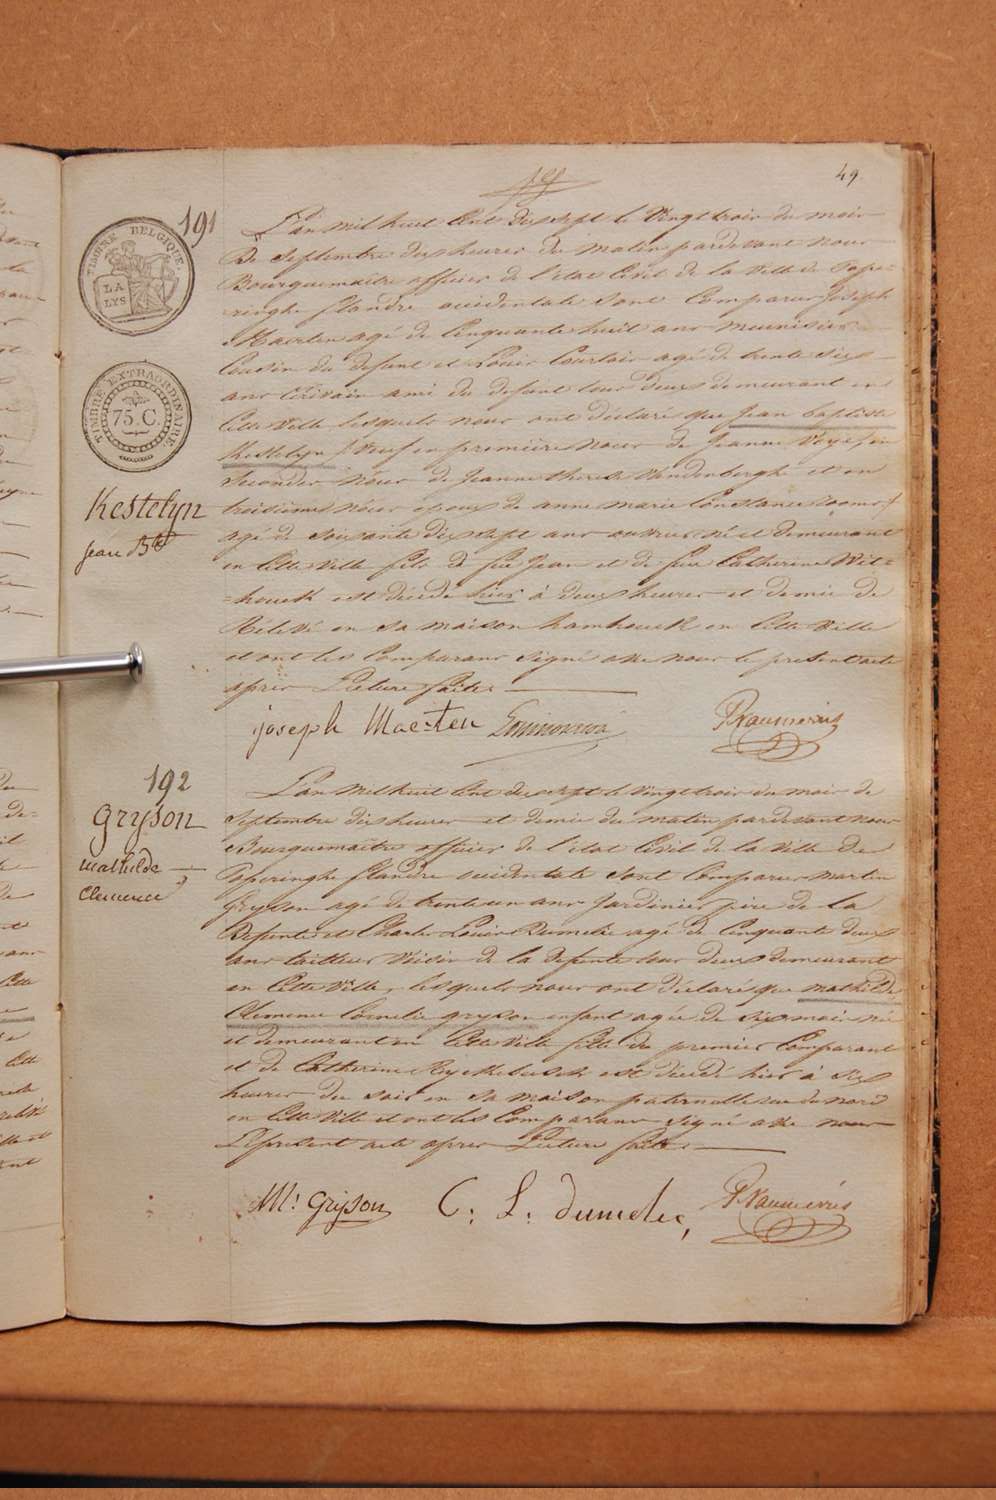 49.
191
TIMBRE BELGIQUE.
LA
LYS
TIMBRE EXTRAORDINAIRE
75.C.
Kestelyn
jean Bte
L'an mil huit Cent dixsept le Vingt trois du mois
De Septembre dix heures du matin pardevant nous
Bourguemaitre officier de l'etat Civil de la Ville de Pope-
ringhe flandre occidentale Sont Comparus Joseph
Maerten agé de Cinquante huit ans meunisier
Cousin du defunt et Louis Courtois agé de trente Six
ans Ecrivain ami du defunt tous deux demeurant en
Cette Ville lesquels nous ont déclaré que Jean baptiste
Kestelyn Veuf en première noces de Jeanne en
Secondes Noces de Jeanne therese Vandenberghe et en
troisieme Noces epoux de anne marie Constance
agé de Soixante dix sept ans ouvrier né et demeurant
en Cette Ville fils de feu Jean et de feue Catherine Wit-
-houck est décédé hier à deux heures et demie de
Rélevé en Sa maison hamhouck en Cette Ville
et ont les Comparans Signé avec nous le présent acte
après Lecture faite.
joseph Maerten
192
gryson
mathilde
Clemence
L'an Mil huit Cent dixsept le Vingt trois du mois de
Septembre dix heures et demie du matin pardevant nous
Bourguemaitre officier de l'etat Civil de la Ville de
Poperinghe flandre occidentale Sont Comparus martin
Gryson agé de trente un ans Jardinier père de la
Defunte et Charles Louis Dumelie agé de Cinquante deux
ans tailleur Voisin de la defunte tous deux demeurant
en Cette Ville, lesquels nous ont déclaré que mathilde
Clemence Cornelie gryson enfant agée de Six mois née
et demeurant en Cette Ville fille du premier Comparant
et de Catherine Ryckebusch est décédé hier à Six
heures du Soir en Sa maison paternelle rue du nord
en Cette Ville et ont les Comparans Signé avec nous
Le présent acte après Lecture faite.
M: gryson C: L: dumelie,